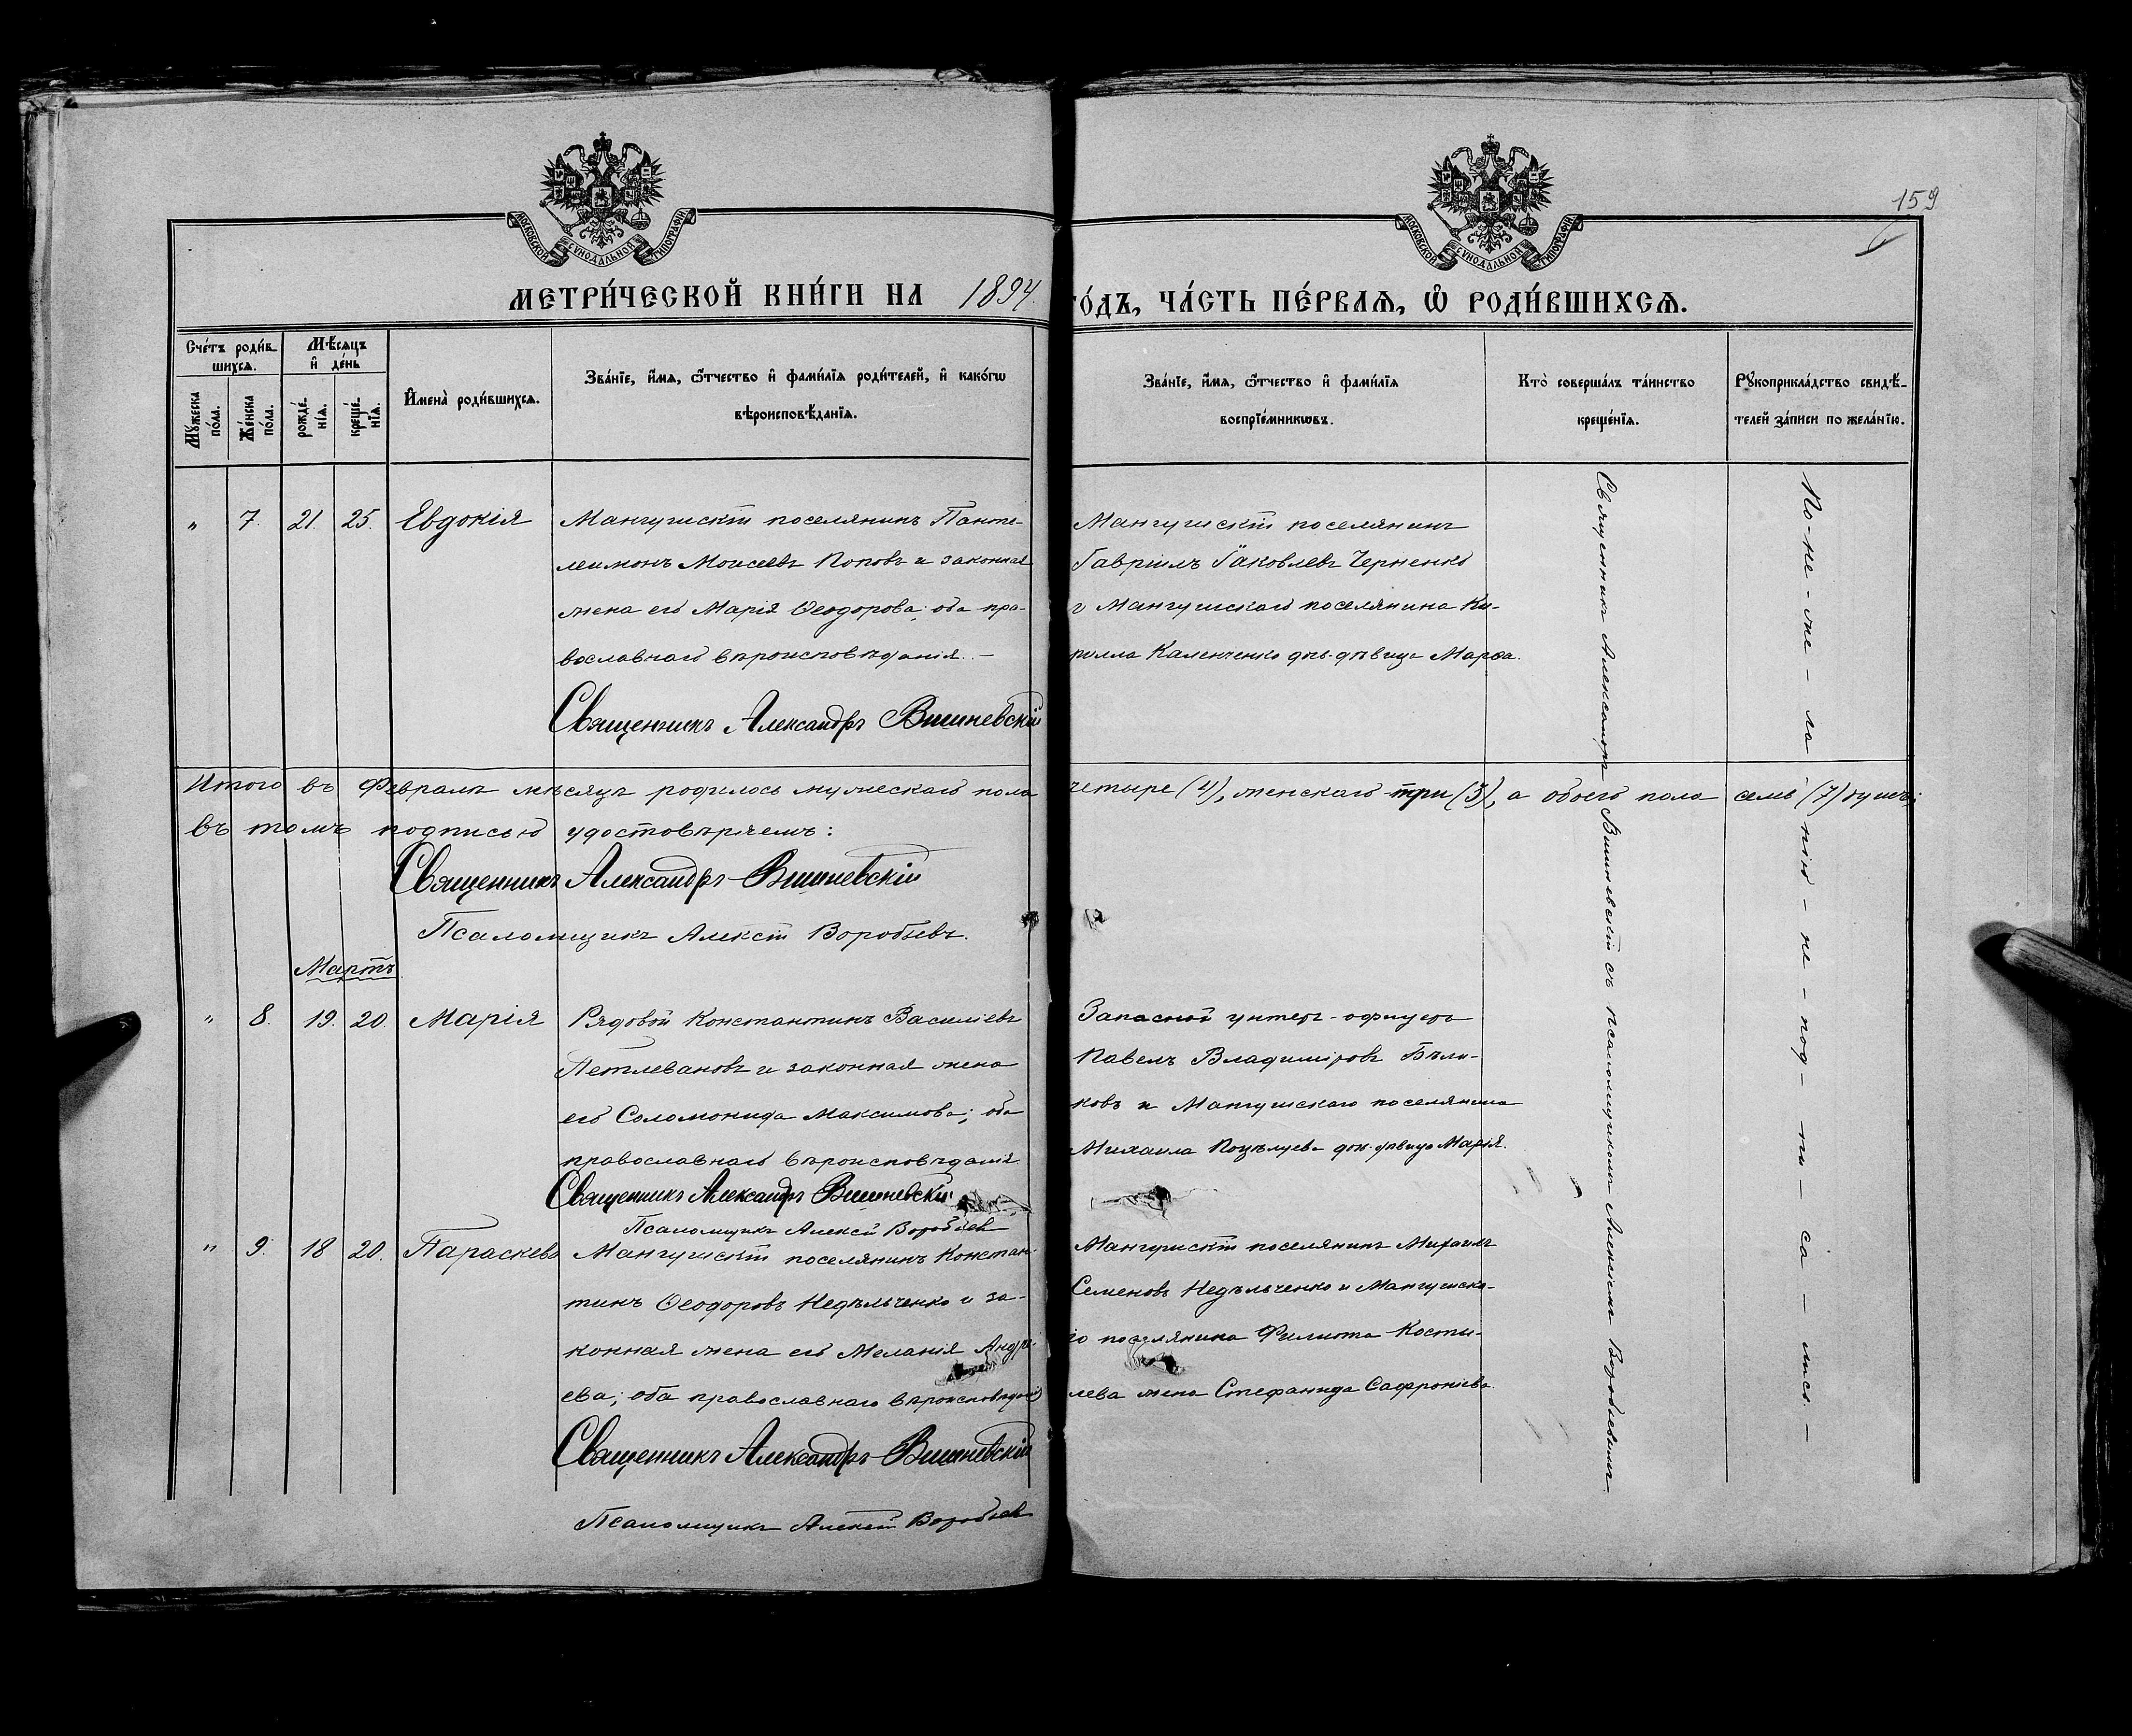 МОСКОВСКОЙ СѴНОДАЛЬНОЙ ТИПОГРАФІИ
МОСКОВСКОЙ СѴНОДАЛЬНОЙ ТИПОГРАФІИ
159
МЕТРИ́ЧЕСКОЙ КНИ́ГИ НА 1894.
ГО́ДЪ, ЧА́СТЬ ПЕ́РВАѦ, Ѡ҆ РОДИ́ВШИХСѦ.
Сче́тъ роди́в-
шихсѧ.
Мꙋ́жеска по́ла.
Же́нска по́ла.
Мѣ́сѧцъ
и҆ де́нь
рожде́-
нїѧ.
креще́-
нїѧ.
И҆мена̀ роди́вшихсѧ.
Зва́нїе, и҆́мѧ, ѻ҆́тчество и҆ фами́лїѧ роди́телей, и҆ како́гѡ
вѣроисповѣ́данїѧ.
Зва́нїе, и҆́мѧ, ѻ҆́тчество и҆ фами́лїѧ
воспрїе́мникѡвъ.
Кто̀ соверша́лъ та́инство
креще́нїѧ.
Рꙋкоприкла́дство свидѣ́-
телей за́писи по жела́нїю.
" 7. 21. 25. Евдокія
Мангушскій поселянинъ Панте-
леимонъ Моисеевъ Поповъ и законная
жена его Марія Ѳеодорова; оба пра-
вославнаго вѣроисповѣданія. –
Священникъ Александръ Вишневскій
Мангушскій поселянинъ
Гавріилъ Іаковлевъ Черненко
и Мангушскаго поселянина Ки-
рилла Каленченко дочь-дѣвица Марѳа.
Итого въ Февралѣ мѣсяцѣ родилось мужескаго пола четыре (4), женскаго три (3), а обоего пола семь (7) душъ;
въ томъ подписью удостовѣряемъ:
Священникъ Александръ Вишневскій
Псаломщикъ Алексій Воробьевъ.
Мартъ
" 8. 19. 20. Марія
Рядовой Константинъ Василіевъ
Петлевановъ и законная жена
его Соломонида Максимова; оба
православнаго вѣроисповѣданія
Священникъ Александръ Вишневскій
Псаломщикъ Алексій Воробьев
Запасной унтеръ-офицеръ
Павелъ Владиміровъ Бѣли-
ковъ и Мангушскаго поселянина
Михаила Поцѣлуева доч. дѣвица Марія.
" 9. 18 20. Параскева
Мангушскій поселянинъ Констан-
тинъ Ѳеодоровъ Недѣльченко и за-
конная жена его Меланія Андре-
ева; оба православнаго вѣроисповѣданія
Священникъ Александръ Вишневскій
Псаломщикъ Алексій Воробьев
Мангушскій поселянинъ Михаилъ
Семеновъ Недѣльченко и Мангушска-
го поселянина Филиппа Косты-
лева жена Стефанида Сафроніева.
Священникъ Александръ Вишневскій съ псаломщикомъ Алексіемъ Воробьевымъ.
По-не-же-ла-нію-не-под-пи-са-лись. –